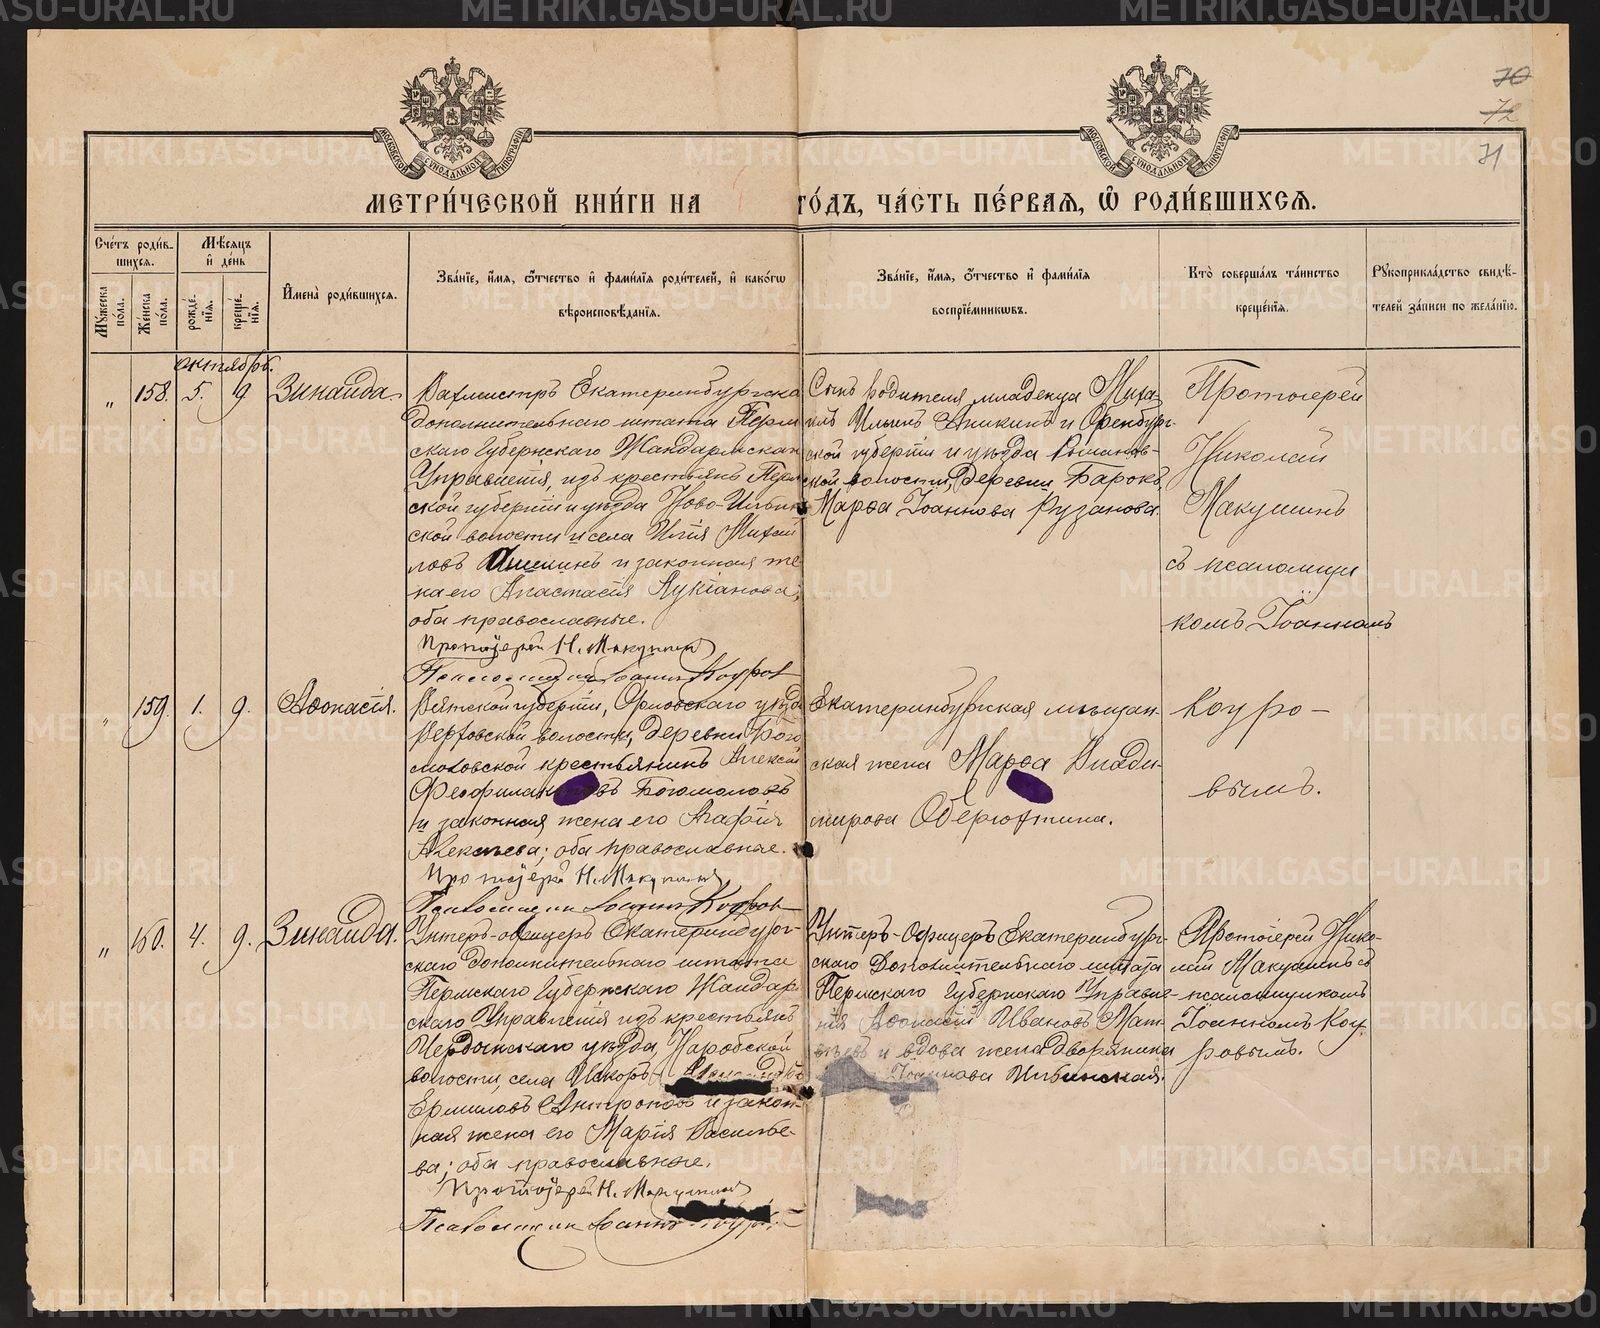 70
72
71
МОСКОВСКОЙ СѴНОДАЛЬНОЙ ТИПОГРАФІИ
МОСКОВСКОЙ СѴНОДАЛЬНОЙ ТИПОГРАФІИ
МЕТРИ́ЧЕСКОЙ КНИ́ГИ НА ГО́ДЪ, ЧА́СТЬ ПЕ́РВАѦ, Ѽ РОДИ́ВШИХСѦ.
Сче́тъ роди́в-
шихсѧ.
Мꙋ́жеска по́ла.
Же́нска по́ла.
Мѣ́сѧцъ
и҆ де́нь
рожде́-
нїѧ.
креще́-
нїѧ.
И҆мена̀ роди́вшихсѧ.
Зва́нїе, и҆́мѧ, ѻ҆́тчество и҆ фами́лїѧ роди́телей, и҆ како́гѡ
вѣроисповѣ́данїѧ.
Зва́нїе, и҆́мѧ, ѻ҆́тчество и҆ фами́лїѧ
воспрїе́мникѡвъ.
Кто̀ соверша́лъ та́инство
креще́нїѧ.
Рꙋкоприкла́дство свидѣ́-
телей за́писи по жела́нїю.
октябрь.
„ 158. 5. 9 Зинаида.
Вахмистръ Екатеринбургска
дополнительнаго штата Перм
скаго Губернскаго Жандармскаго
Управленія, изъ крестьянъ Перм
ской губерніи и уѣзда Ново-Ильин
ской волости и села Илія Михаи
ловъ Аникинъ и законная же
на его Анастасія Лукіанова;
оба православные.
Протоіерей Н. Макушинъ
Псаломщикъ Іоаннъ Коуровъ
Сынъ родителя младенца Миха
илъ Ильинъ Аникинъ и Оренбург-
ской губерніи и уѣзда
ской волости, деревни
Марѳа Іоаннова Рузанова.
Протоіерей
Николай
Макушинъ
съ псаломщи
комъ Іоанномъ
Коуро-
вымъ.
„ 159. 1. 9. Аѳонасія.
Вятской губерніи, Орловскаго уѣзда
Верховской волости, деревни Бого
моловской крестьянинъ Алексѣй
Феофилактовъ Богомоловъ
и законная жена его Агафія
Алексѣева; оба православные.
Протоіерей Н. Макушинъ
Псаломщикъ Іоаннъ Коуровъ
Екатеринбургская мѣщан-
ская жена Марѳа Влади-
мирова Оберюхтина.
„ 160. 4. 9. Зинаида.
Унтеръ-офицеръ Екатеринбург-
скаго дополнительнаго штата
Пермскаго Губернскаго Жандарм
скаго Управленія изъ крестьянъ
Чердынскаго уѣзда,
волости, села Искоръ
Ермиловъ Антроповъ и закон-
ная жена его Марія Василье-
ва; оба православные.
Протоіерей Н. Макушинъ
Псаломщикъ Іоаннъ Коуровъ
Унтеръ-Офицеръ Екатеринбург-
скаго Дополнительнаго штата
Пермскаго Губернскаго Управле-
нія Аѳонасій Ивановъ Мат-
вѣевъ и вдова жена Дворянина
Іоаннова Ильинская.
Протоіерей Нико-
лай Макушинъ съ
псаломщикомъ
Іоанномъ Коу-
ровымъ.
METRIKI.GASO-URAL.RU